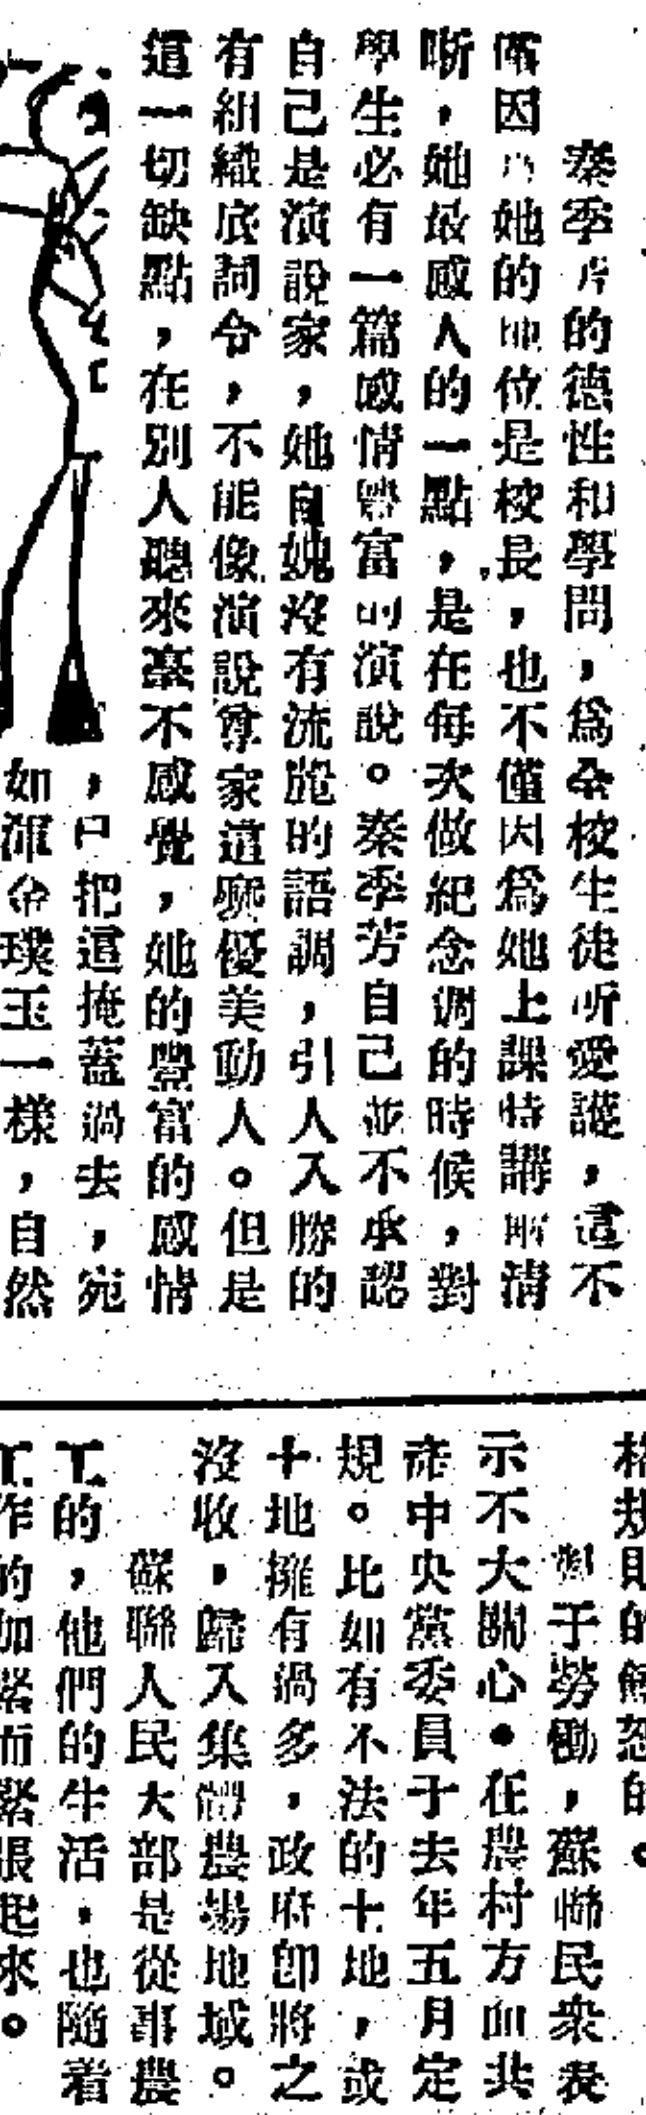 秦季芳的德性和學問，爲全校生徒所愛護，這不
僅因爲她的地位是校長，也不僅因爲她上課時講解清
晰，她最感人的一點，是在每次做紀念週的時候，對
學生必有一篇感情豐富的演說。秦季芳自己並不承認
自己是演說家，她自媿沒有流麗的語調，引人入勝的
有組織底詞令，不能像演說專家這麽優美動人。但是
這一切缺點，在別人聽來毫不感覺，她的豐富的感情
，已把這掩蓋過去，宛
如渾金璞玉一樣，自然
格規則的解恕的。
對于勞働，蘇聯民衆表
示不大關心。在農村方面共
產中央黨委員于去年五月定
規。比如有不法的土地，或
土地擁有過多，政府卽將之
沒收，歸入集體農場地域。
蘇聯人民大部是從事農
工的，他們的生活，也隨着
工作的加緊而緊張起來。